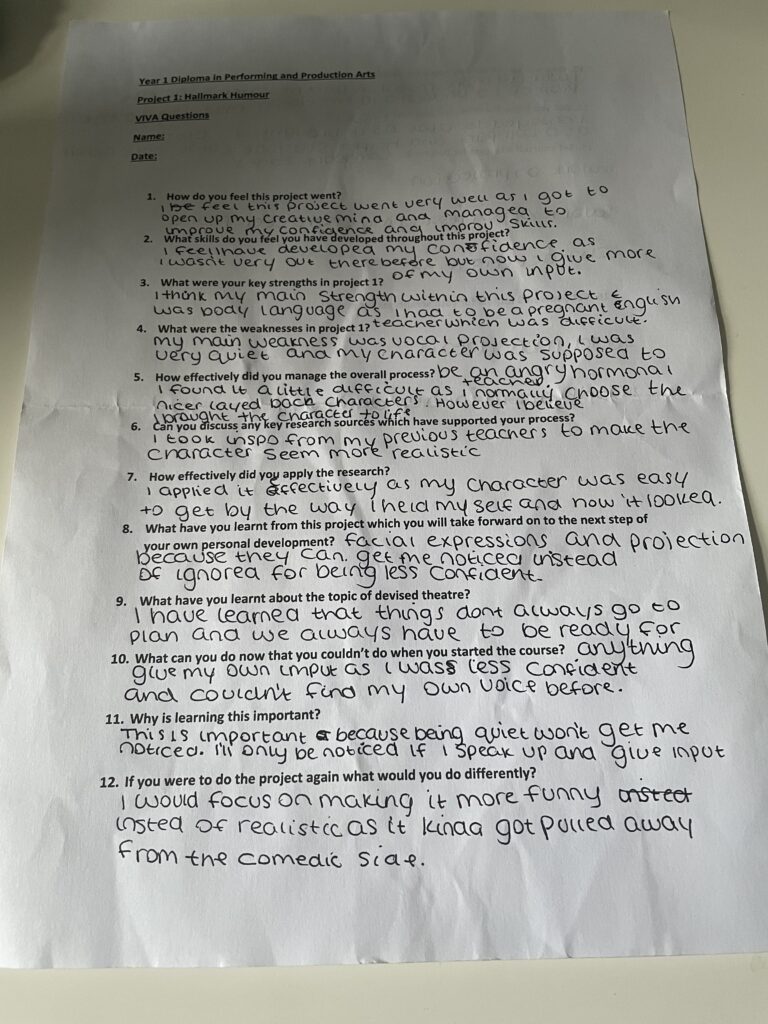 Year 1 Diploma in Performing and Production Arts
Project 1: Hallmark Humour
VIVA Questions
Name:
Date:
1. How do you feel this project went?
I be feel this project went very well as I got to
open up my creative mind and managed to
improve my confidence and improv skills.
2. What skills do you feel you have developed throughout this project?
I feel I have developed my confidence as
I wasn't very out there before but now I give more
of my own input.
3. What were your key strengths in project 1?
I think my main strength within this project
was body language as I had to be a pregnant english
teacher which was difficult.
4. What were the weaknesses in project 1?
my main weakness was vocal projection, I was
very quiet and my character was supposed to
be an angry hormonal
teacher.
5. How effectively did you manage the overall process?
I found it a little difficult as I normally choose the
nicer layed back characters. However I believe
I brought the character to life
6. Can you discuss any key research sources which have supported your process?
I took inspo from my previous teachers to make the
character seem more realistic
7. How effectively did you apply the research?
I applied it effectively as my character was easy
to get by the way I held my self and how it looked.
8. What have you learnt from this project which you will take forward on to the next step of
your own personal development? facial expressions and projection
because they can get me noticed instead
of ignored for being less confident.
9. What have you learnt about the topic of devised theatre?
I have learned that things dont always go to
plan and we always have to be ready for
anything
10. What can you do now that you couldn't do when you started the course?
give my own imput as I was less confident
and couldn't find my own voice before.
11. Why is learning this important?
This is important because being quiet won't get me
noticed. I'll only be noticed if I speak up and give input
12. If you were to do the project again what would you do differently?
I would focus on making it more funny insted
insted of realistic as it kinda got pulled away
from the comedic side.